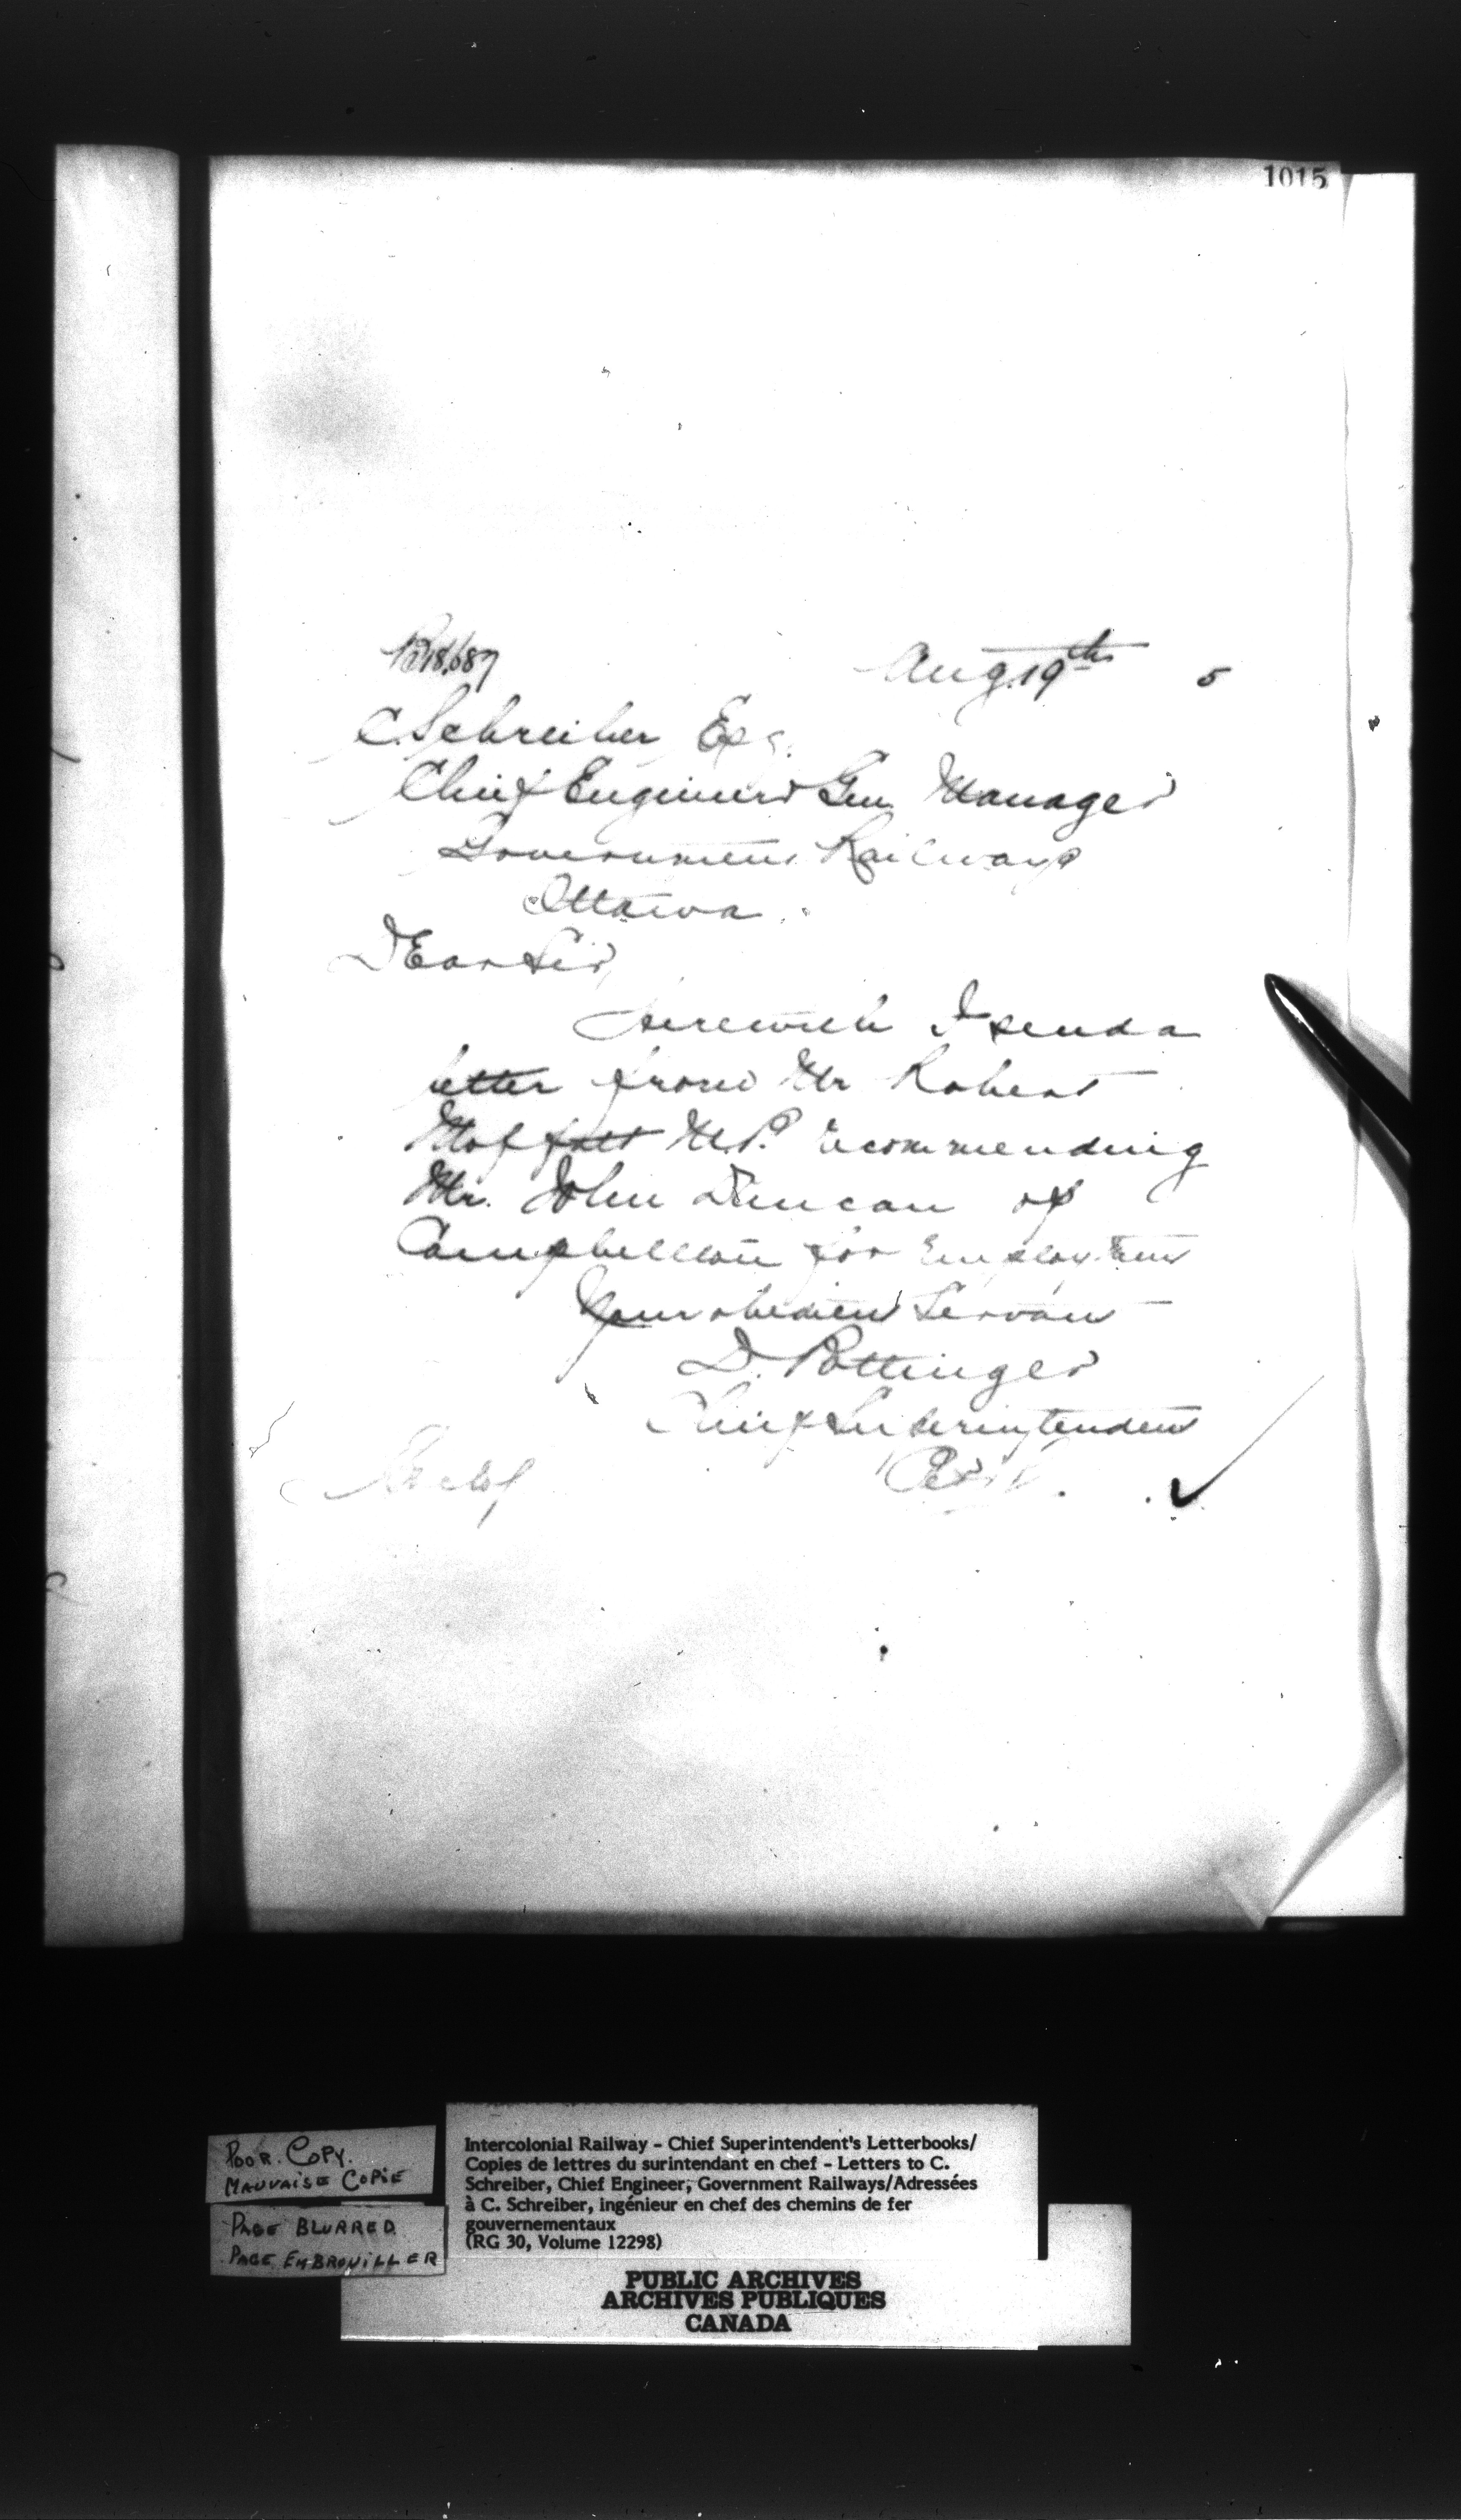 1015
Aug. 19th 5
C. Schreiber Esq.
Chief Engineer & Gen Manager
Government Railways
Ottawa.
Dear Sir,
Herewith I send a
letter from Mr Robert
Moffatt M.P. recommending
Mr. John Duncan of
Campbellton for Employment
Your obedient Servant
D. Pottinger
Chief Superintendent
POOR. COPY.
MAUVAISE COPIE
PAGE BLURRED
PAGE EMBROUILLER
Intercolonial Railway - Chief Superintendent's Letterbooks/
Copies de lettres du surintendant en chef - Letters to C.
Schreiber, Chief Engineer, Government Railways/Adressées
à C. Schreiber, ingénieur en chef des chemins de fer
gouvernementaux
(RG 30, Volume 12298)
PUBLIC ARCHIVES
ARCHIVES PUBLIQUES
CANADA